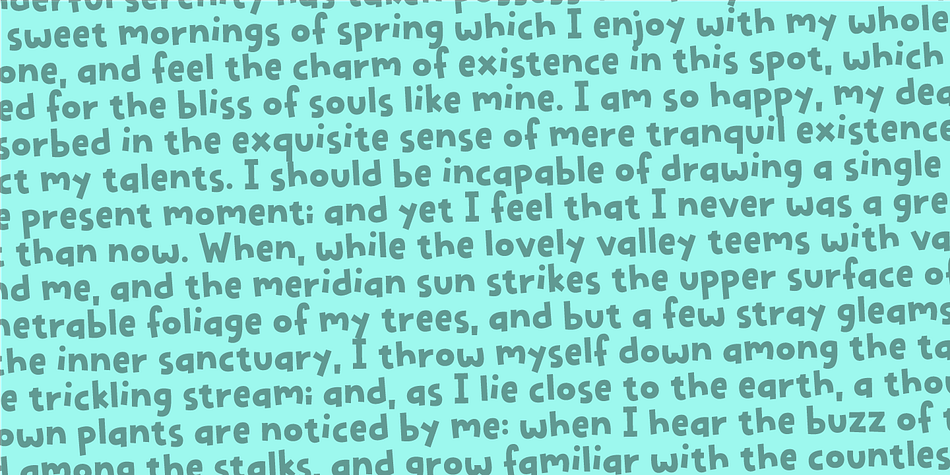 serenity has taken
sweet mornings of spring which I enjoy with my whole
one, and feel the charm of existence in this spot, which
ed for the bliss of souls like mine. I am so happy, my dea
sorbed in the exquisite sense of mere tranquil existence
ct my talents. I should be incapable of drawing a single
e present moment; and yet I feel that I never was a gre
than now. When, while the lovely valley teems with va
nd me, and the meridian sun strikes the upper surface of
netrable foliage of my trees, and but a few stray gleams
the inner sanctuary, I throw myself down among the ta
e trickling stream; and, as I lie close to the earth, a thou
own plants are noticed by me: when I hear the buzz of
among the stalks, and grow familiar with the countles